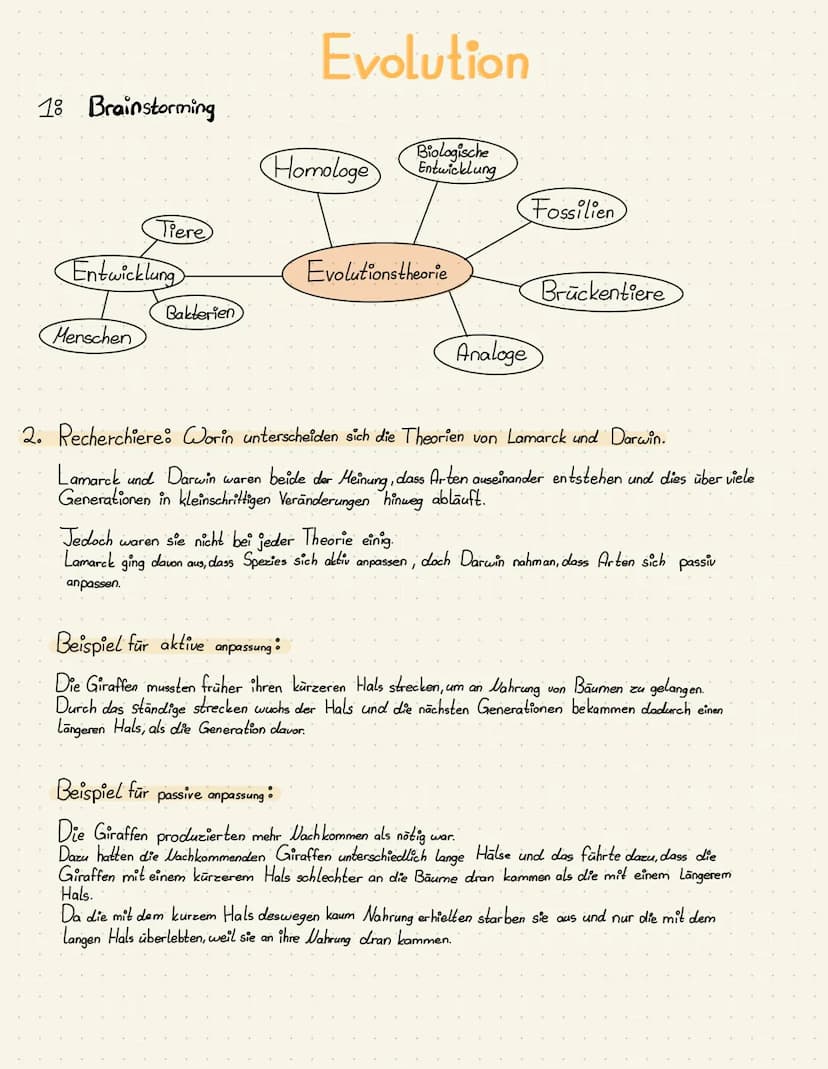 Evolution
1: Brainstorming
Homologe
Biologische
Entwicklung
Fossilien
Tiere
Entwicklung
Evolutionstheorie
Brückentiere
Bakterien
Menschen
Analoge
2. Recherchiere: Worin unterscheiden sich die Theorien von Lamarck und Darwin.
Lamarck und Darwin waren beide der Meinung, dass Arten auseinander entstehen und dies über viele
Generationen in kleinschrittigen Veränderungen hinweg abläuft.
Jedoch waren sie nicht bei jeder Theorie einig.
Lamarck ging davon aus, dass Spezies sich aktiv anpassen, doch Darwin nahm an, dass Arten sich passiv
anpassen.
Beispiel für aktive anpassung:
Die Giraffen mussten früher ihren kürzeren Hals strecken, um an Nahrung von Bäumen zu gelangen.
Durch das ständige strecken wuchs der Hals und die nächsten Generationen bekammen dadurch einen
längeren Hals, als die Generation davor.
Beispiel für passive anpassung:
Die Giraffen produzierten mehr Nachkommen als nötig war.
Dazu hatten die Nachkommenden Giraffen unterschiedlich lange Hälse und das führte dazu, dass die
Giraffen mit einem kürzerem Hals schlechter an die Bäume dran kammen als die mit einem längerem
Hals.
Da die mit dem kurzem Hals deswegen kaum Nahrung erhielten starben sie aus und nur die mit dem
langen Hals überlebten, weil sie an ihre Nahrung dran kammen.